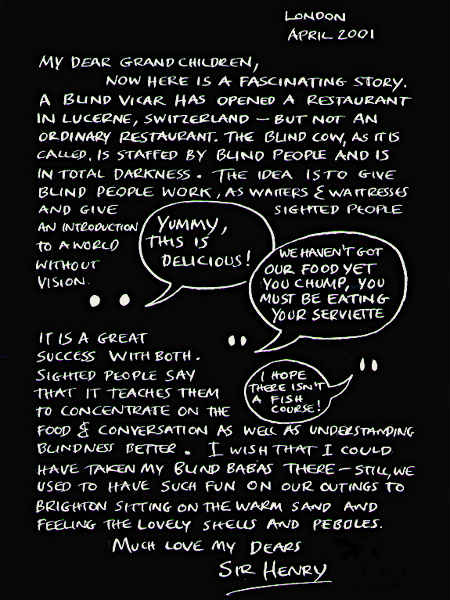 LONDON
APRIL 2001
MY DEAR GRANDCHILDREN,
NOW HERE IS A FASCINATING STORY.
A BLIND VICAR HAS OPENED A RESTAURANT
IN LUCERNE, SWITZERLAND – BUT NOT AN
ORDINARY RESTAURANT. THE BLIND COW, AS IT IS
CALLED, IS STAFFED BY BLIND PEOPLE AND IS
IN TOTAL DARKNESS. THE IDEA IS TO GIVE
BLIND PEOPLE WORK, AS WAITERS & WAITRESSES
AND GIVE SIGHTED PEOPLE
AN INTRODUCTION
TO A WORLD
WITHOUT
VISION.
YUMMY,
THIS IS
DELICIOUS!
WE HAVEN'T GOT
OUR FOOD YET
YOU CHUMP, YOU
MUST BE EATING
YOUR SERVIETTE
I HOPE
THERE ISN'T
A FISH
COURSE!
IT IS A GREAT
SUCCESS WITH BOTH.
SIGHTED PEOPLE SAY
THAT IT TEACHES THEM
TO CONCENTRATE ON THE
FOOD & CONVERSATION AS WELL AS UNDERSTANDING
BLINDNESS BETTER. I WISH THAT I COULD
HAVE TAKEN MY BLIND BABAS THERE – STILL, WE
USED TO HAVE SUCH FUN ON OUR OUTINGS TO
BRIGHTON SITTING ON THE WARM SAND AND
FEELING THE LOVELY SHELLS AND PEBBLES.
MUCH LOVE MY DEARS
SIR HENRY